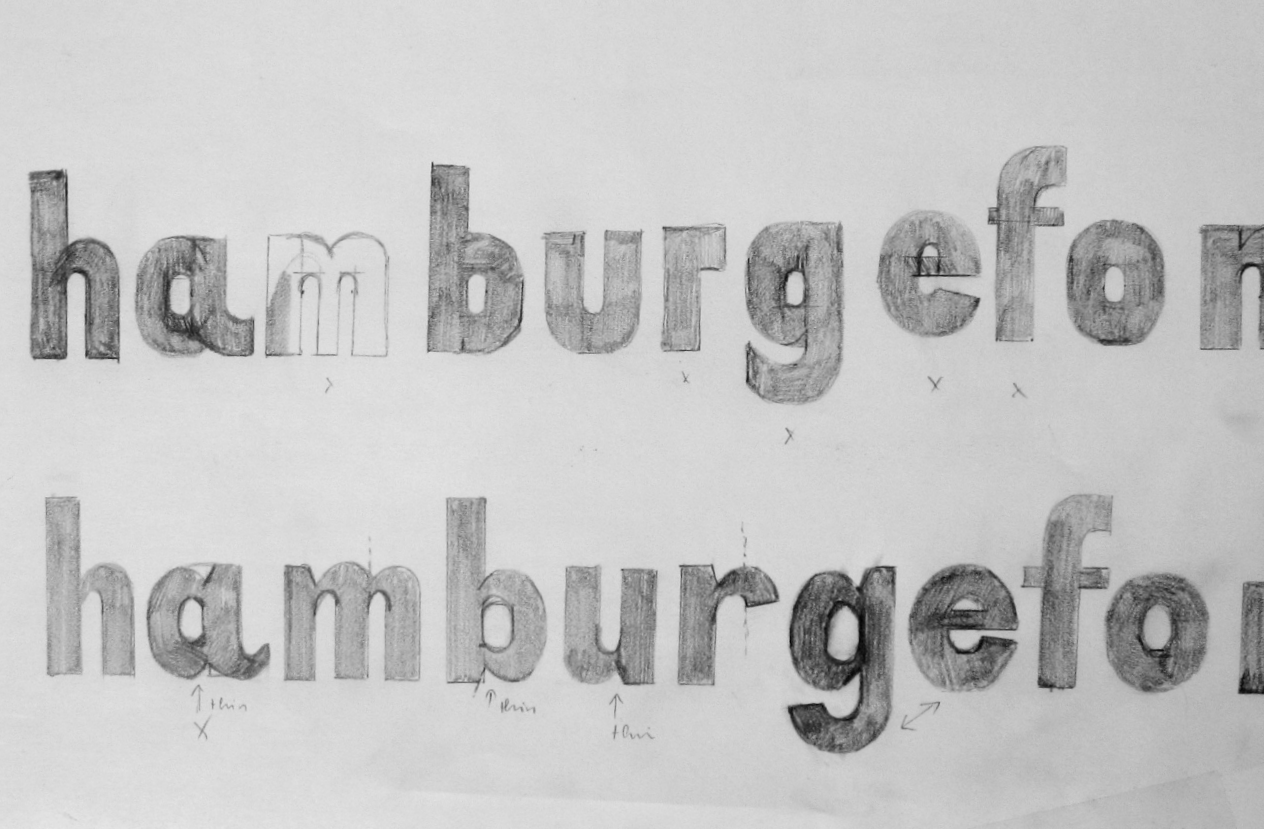 hamburgefon
x x x
x
hamburgefo
thin thin thin
x